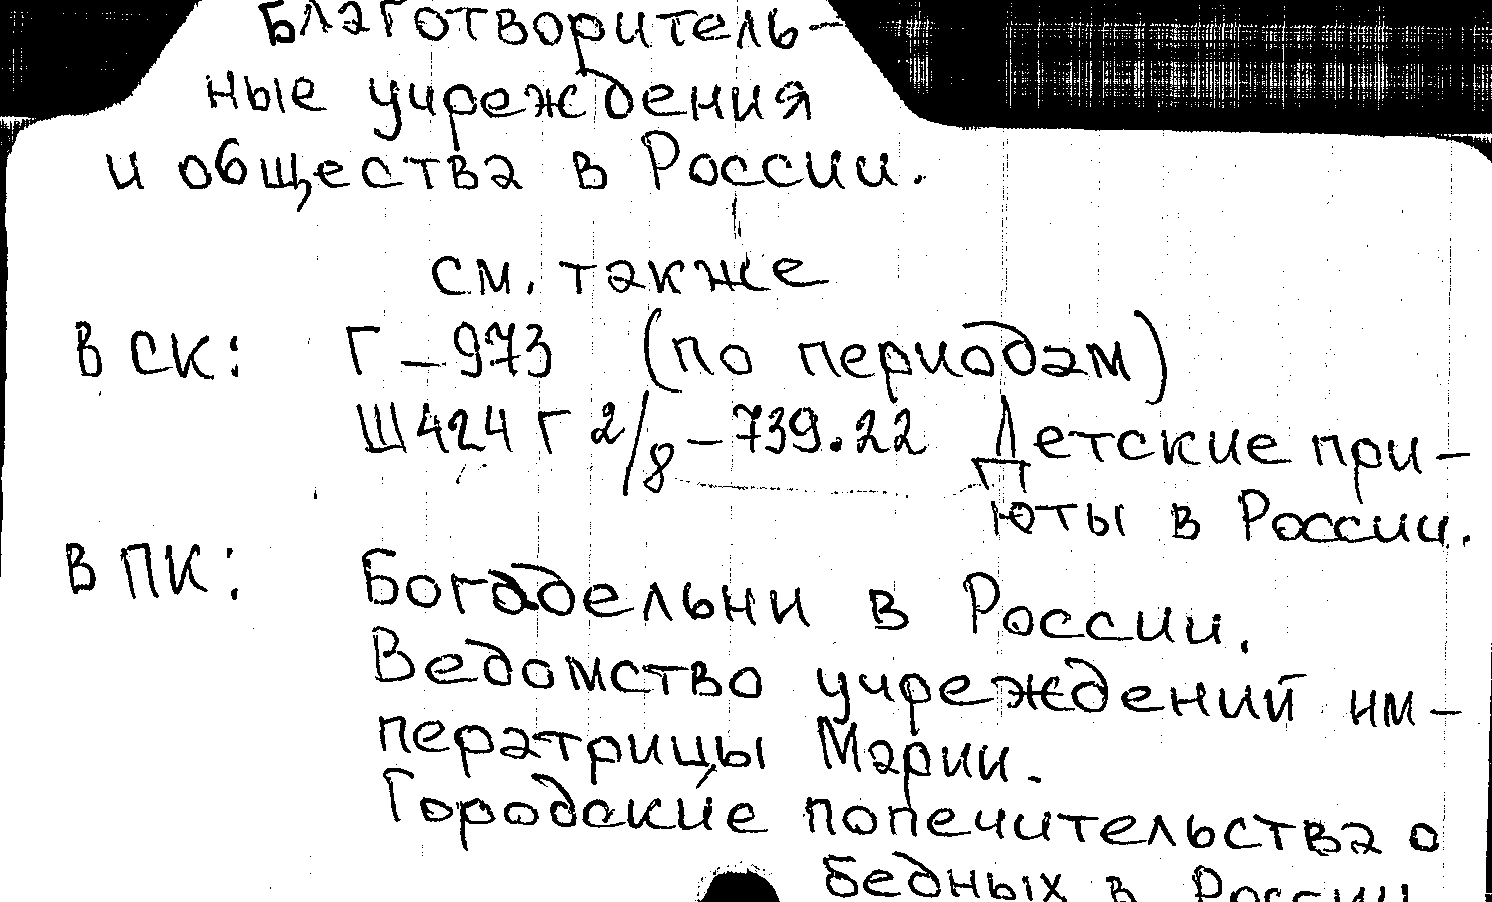 Благотворитель-
ные учреждения
и общества в России.
см. также
в СК: Г-973 (по периодам)
Ш424Г2/8-739.22 Детские при-
юты в России.
в ПК: Богадельни в России.
Ведомство учреждений им-
ператрицы Марии.
Городские попечительства о
бедных в России